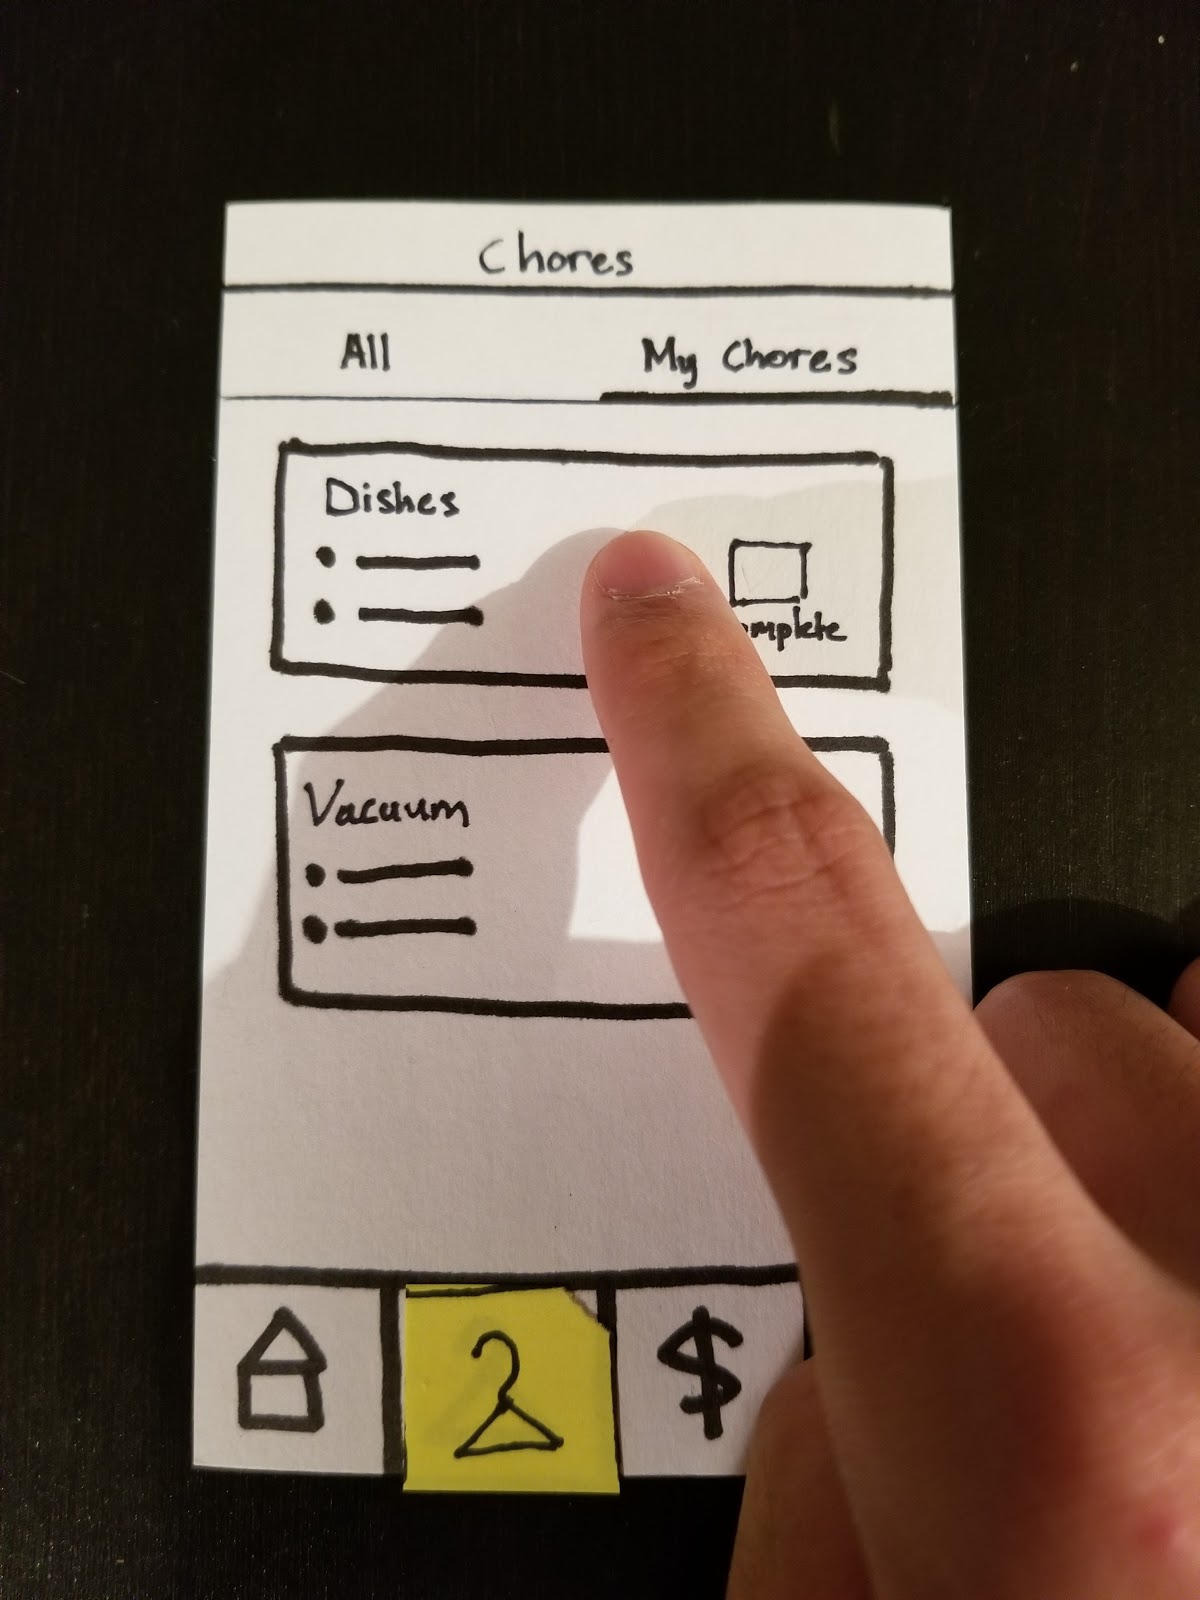 Chores
All
My Chores
Dishes
mplete
Vacuum
$